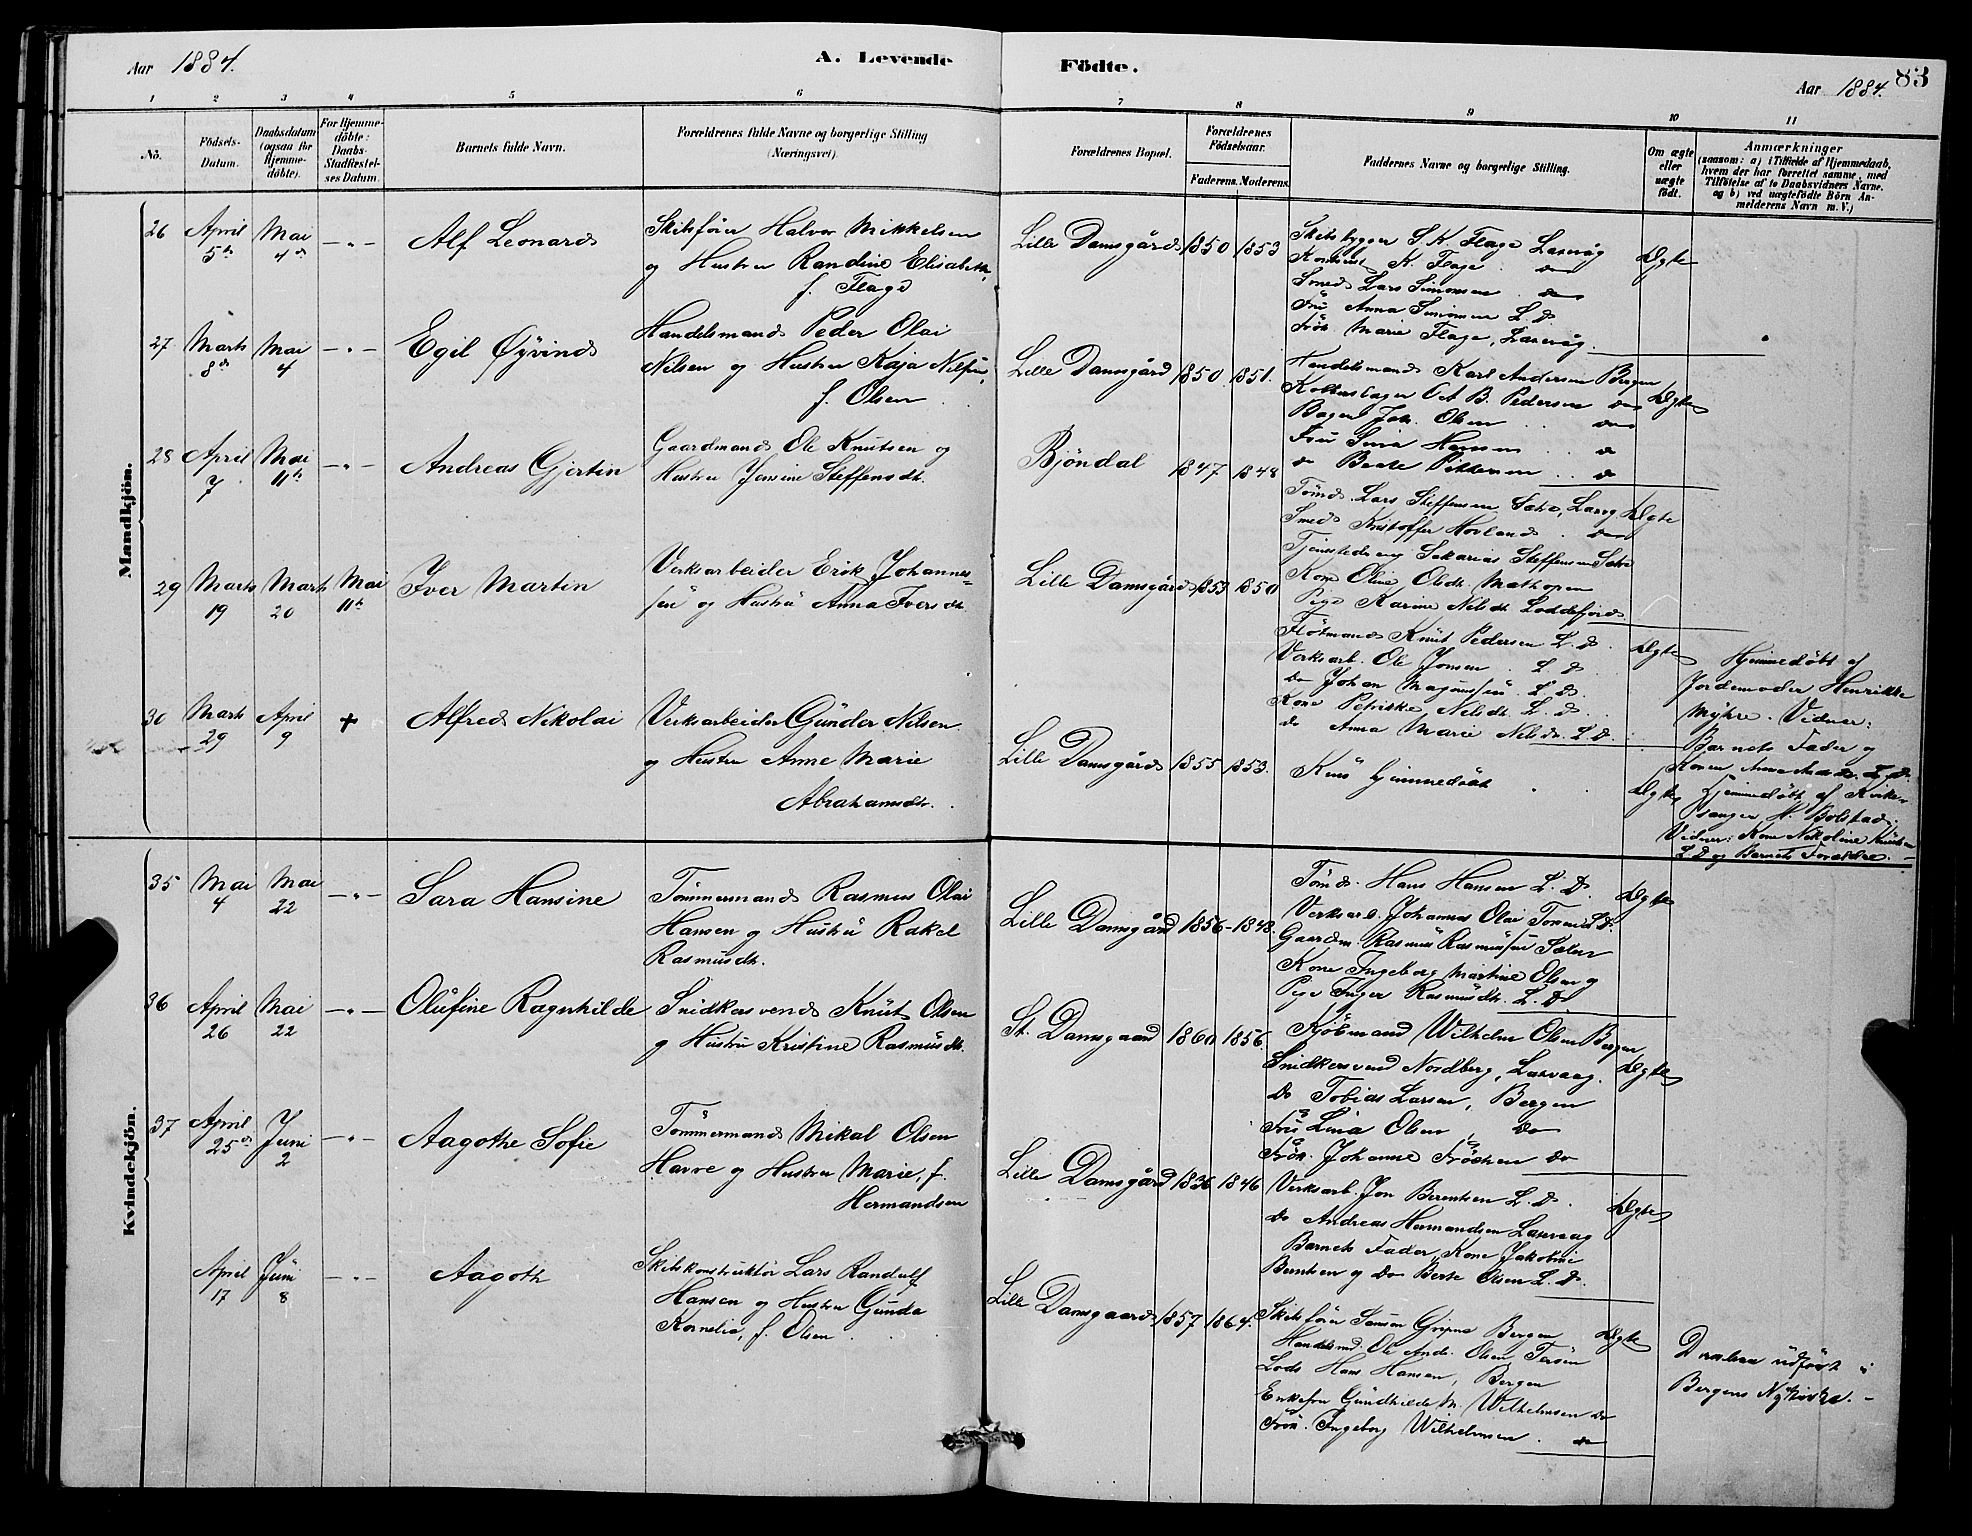 Aar 1884. A. Levende Födte. Aar 1884. 83
1 2 3 4 5 6 7 8 9 10 11
No.
Födsels-Datum.
Daabsdatum (ogsaa for Hjemme-döbte).
For Hjemme-döbte: Daabs-Stadfæstel-ses Datum.
Barnets fulde Navn.
Forældrenes fulde Navne og borgerlige Stilling
(Næringsvei).
Forældrenes Bopæl.
Forældrenes Födselsaar.
Faderens. Moderens.
Faddernes Navne og borgerlige Stilling.
Om ægte eller uægte födt.
Anmærkninger
(saasom: a) i Tilfælde af Hjemmedaab,
hvem der har forrettet samme, med
Tilföielse af to Daabsvidners Navne.
og b) ved uægtefödte Börn An-
melderens Navn m. V.)
Mandkjön.
26 April 5te Mai 4de -"- Alf Leonard
Skibsfører Halvor Mikkelsen
og Hustru Randine Elisabeth,
f. Flage
Lille Damsgård 1850 1853
Skibsbygger S. K. Flage Laxevåg
K. Flage do
Smed Lars Simonsen do
Fru Anna Simonsen L. D.
Frøk. Marie Flage, Laxevåg.
Ægte
27 Marts 8de Mai 4 -"- Egil Øyvind
Handelsmand Peder Olai
Nilsen og Hustru Kaja Nilsen,
f. Olsen
Lille Damsgård 1850 1851.
Handelsmand Karl Andersen Bergen
B. Pedersen do
Bager Joh. Olsen do
Fru Hansen do
do Beate Pettersen do
Ægte
28 April 7 Mai 11te -"- Andreas Gjertin
Gaardmand Ole Knutsen og
Hustru Jensine Steffensdt.
Bjöndal 1847 1848
Tømd. Lars Steffensen
Smed Kristoffer Hovland do
Tjenestedreng Sakarias Steffensen
Kone Oline Olsdt. Mathopen
Pige Karine Nilsdt. Loddefjord
Ægte
29 Marts 19 Marts 20 Mai 11te Iver Martin
Verksarbeider Erik Johannes-
sen og Hustru Anna Iversdt.
Lille Damsgård 1853 1850
Knut Pedersen L. D.
Verksarb. Ole Jonsen L. D.
do Johan Magnussen L. D.
Kone Nilsdt. L. D.
do Anna Marie Nilsdt. L. D.
Ægte
Hjemmedøbt af
Jordemoder Henrikke
Myhre. Vidner:
Barnets Fader og
Konen L. D.
30 Marts 29 April 9 + Alfred Nikolai
Verksarbeider Günder Nilsen
og Hustru Anne Marie
Abrahamsdt.
Lille Damsgård 1855 1853.
Kun hjemmedøbt
Ægte
Hjemmedøbt af Kirke-
sanger H. Bolstad.
Vidner: Kone Nikoline
L. D. og Barnets Forældre.
Kvindekjön.
35 Mai 4 Mai 22 -"- Sara Hansine
Tømmermand Rasmus Olai
Hansen og Hustru Rakel
Rasmusdt.
Lille Damsgård 1856 - 1848.
Tømd. Hans Hansen L. D.
Verksarb. Johannes Olai L. D.
Gaardm. Rasmus Rasmussen
Kone Ingeborg Martine Olsen og
Pige Inger Rasmusdt. L. D.
Ægte
36 April 26 Mai 22 -"- Olufine Ragnhilde
Snidkersvend Knut Olsen
og Hustru Kristine Rasmusdt.
St. Damsgaard 1860 1856.
Kjøbmand Wilhelm Olsen Bergen
Snidkersvend Nordberg, Laxevaag.
do Tobias Larsen, Bergen
Fru Lina Olsen do
Frøk. Johanne do
Ægte
37 April 25de Juni 2 -"- Aagothe Sofie
Tømmermand Mikal Olsen
Havre og Hustru Marie, f.
Hermandsen
Lille Damsgård 1836 1846
Verksarb. Jon Berentsen L. D.
do Andreas Hermandsen Laxevaag
Barnets Fader, Kone Jakobine
Berntsen og do Berte Olsen L. D.
Ægte
April 17 Juni 8 -"- Aagoth
Skibskonstruktør Lars Randulf
Hansen og Hustru Gunda
Kornelia, f. Olsen
Lille Damsgaard 1857 1864.
Skibsfører Bergen
Handelsmd. Ole Andr. Olsen
Lods Hans Hansen, Bergen
Enkefru Gundhilde M. Wilhelmsen do
Frøk. Ingeborg Wilhelmsen do
Ægte
Daaben udført i
Bergens Nykirke.